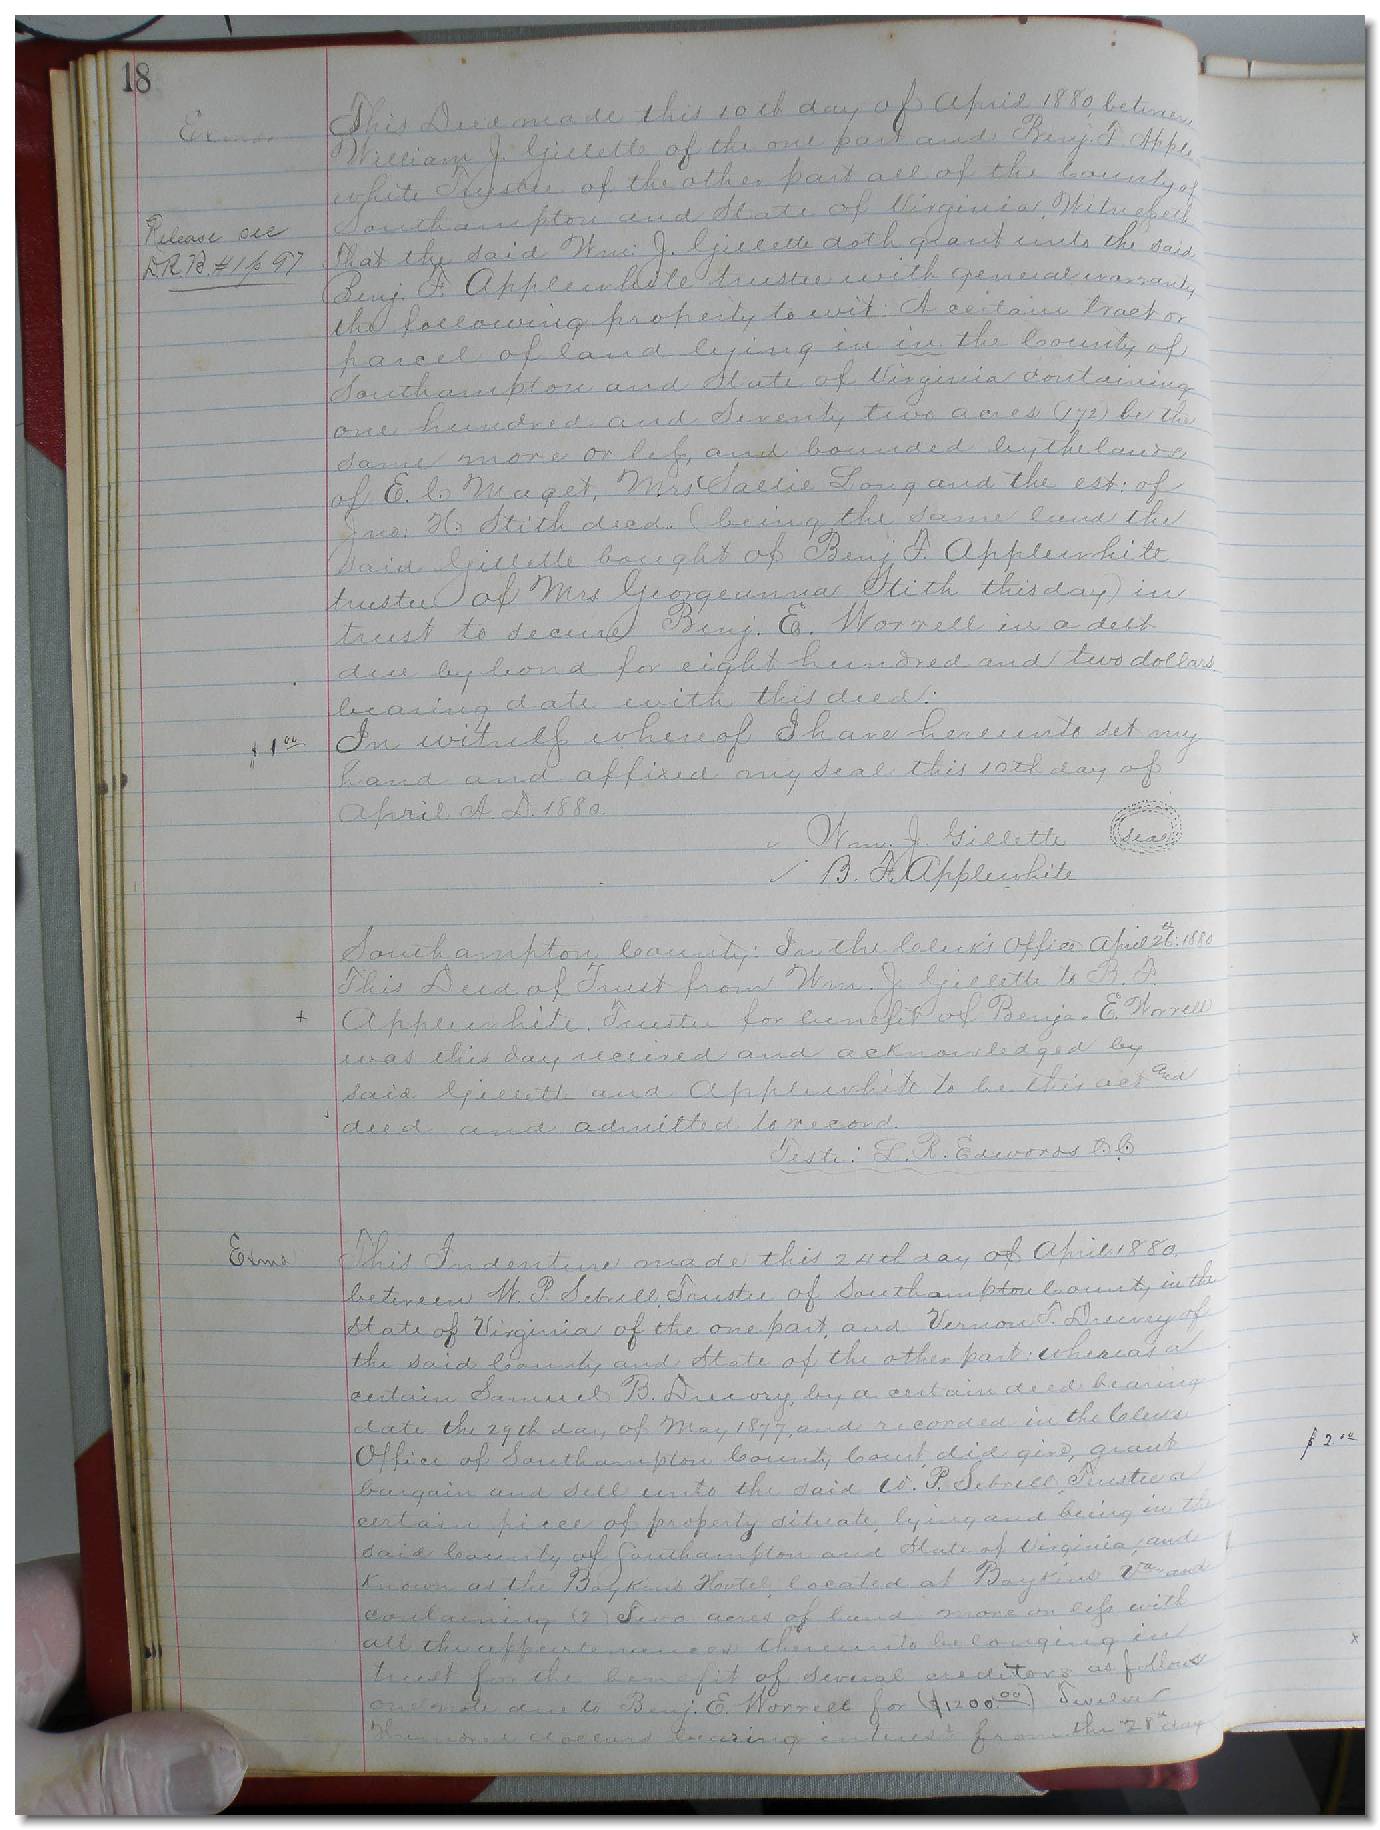 18
This Deed made this 10th day of April 1880 between
William J. Gillette of the one part and Benj. F Apple
white Trustee of the other part all of the County of
Southampton and State of Virginia. Witnesseth
Release see
That the said Wm. J. Gillette doth grant unto the said
DRB #1 p 97
Benj. F. Applewhite trustee with general warranty
the following property to wit: A certain tract or
parcel of land lying in in the County of
Southampton and State of Virginia containing
one hundred and Seventy two acres (172) be the
same more or less, and bounded by the lands
of E. C. Maget, Mrs Sallie Long and the est: of
Jno. H. Stith decd. (being the same land the
said Gillette bought of Benj F. Applewhite
trustee of Mrs Georgeanna Stith this day) in
trust to secure Benj. E. Worrell in a debt
due by bond for eight hundred and two dollars
bearing date with this deed:
$1 00 In witness whereof I have hereunto set my
hand and affixed my seal this 10th day of
April A. D. 1880
Wm. J. Gillette seal
B. F. Applewhite
Southampton County: In the Clerk's Office April 26th 1880
This Deed of Trust from Wm. J Gillette to B. F.
+ Applewhite, Trustee for benefit of Benja. E. Worrell
was this day received and acknowledged by
said Gillette and Applewhite to be this act and
deed and admitted to record.
Teste: L. R. Edwards D.C.
Exmd This Indenture made this 24th day of April 1880,
between W. P. Sebrell, Trustee of Southampton County, in the
State of Virginia of the one part, and Vernon T. Drewry of
the said County and State of the other part: whereas a
certain Samuel B. Drewry, by a certain deed bearing
date the 29th day of May 1877, and recorded in the Clerks
Office of Southampton County Court did give, grant
$2.00
bargain and sell unto the said W. P. Sebrell Trustee a
certain piece of property situate, lying and being in the
said County of Southampton and State of Virginia, and
known as the Boykins Hotel, located at Boykins Va. and
containing (2) Two acres of land more or less with
all the appurtenances thereunto belonging in
x
trust for the benefit of several creditors as follows
one note due to Benj. E. Worrell for ($1200.00) Twelve
Hundred dollars bearing interest from the 28th day